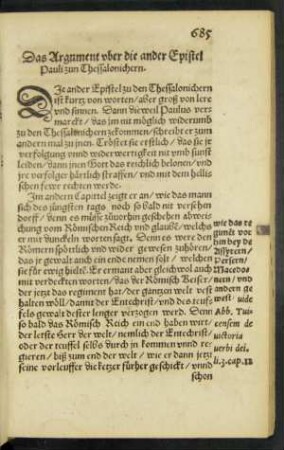 685
Das Argument vber die ander Epistel
Pauli zun Thessalonichern.
DJe ander Epistel zu den Thessalonichern
ist kurtz von worten/ aber groß von lere
vnd sinnen. Dann dieweil Paulus ver-
marckt/ das jm nit möglich widerumb
zu den Thessalonichern zekommen/ schreibt er zum
andern mal zu jnen. Tröstet sie erstlich/ das sie je
verfolgung vnnd widerwertigkeit nit vmb sunst
leiden/ dann jnen Gott das reichlich belonen/ vnd
jre verfolger härtlich straffen/ vnd mit dem hellis
schen fewr rechten werde.
Jm andern Capittel zeigt er an/ wie das mann
sich des jüngsten tags noch so bald nit versehen
dörff/ denn es müsse zuuorhin geschehen abweis
chung vom Römischen Reich vnd glauben/ welchs
er mit dunckeln worten sagt. Denn es were den
Römern spörtlich vnd wider gewesen zuhören/
das je gewalt auch ein ende nemen solt/ welchen
sie für ewig hielten. Er ermant aber gleichwol auch
mit verdeckten worten/ das der Römisch Keiser/
der jetzt das regiment hat/ der gantzen welt vest
halten wöll/ damit der Entechrist/ vnd des teufs
fels gewalt dester lenger verzogen werd. Denn
so bald das Römisch Reich ein end haben wirt/
der letste Herr der welt/ nemlich der Entechrist/
oder der teuffel selbs durch jn kommen vnnd re-
gieren/ biß zum end der welt/ wie er dann jetzt
seine vorleuffer die ketzer fürher geschickt/ vnnd
schon
wie das re
giment vor
hin bey de
Assyreen/
Persern/
Macedo
nern/ vnd
andern ge
west/ vide
Abb. Tui-
censem de
victoria
verbi dei.
li.3.cap.12